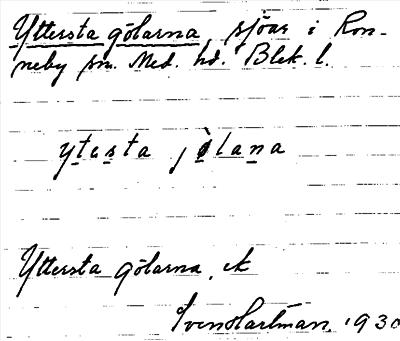 Yttersta gölarna, sjöar i Ron-
neby sn. Med. hd. Blek. l.
ytesta jòlana
Yttersta gölarna, ek
Sven Hartman 1930